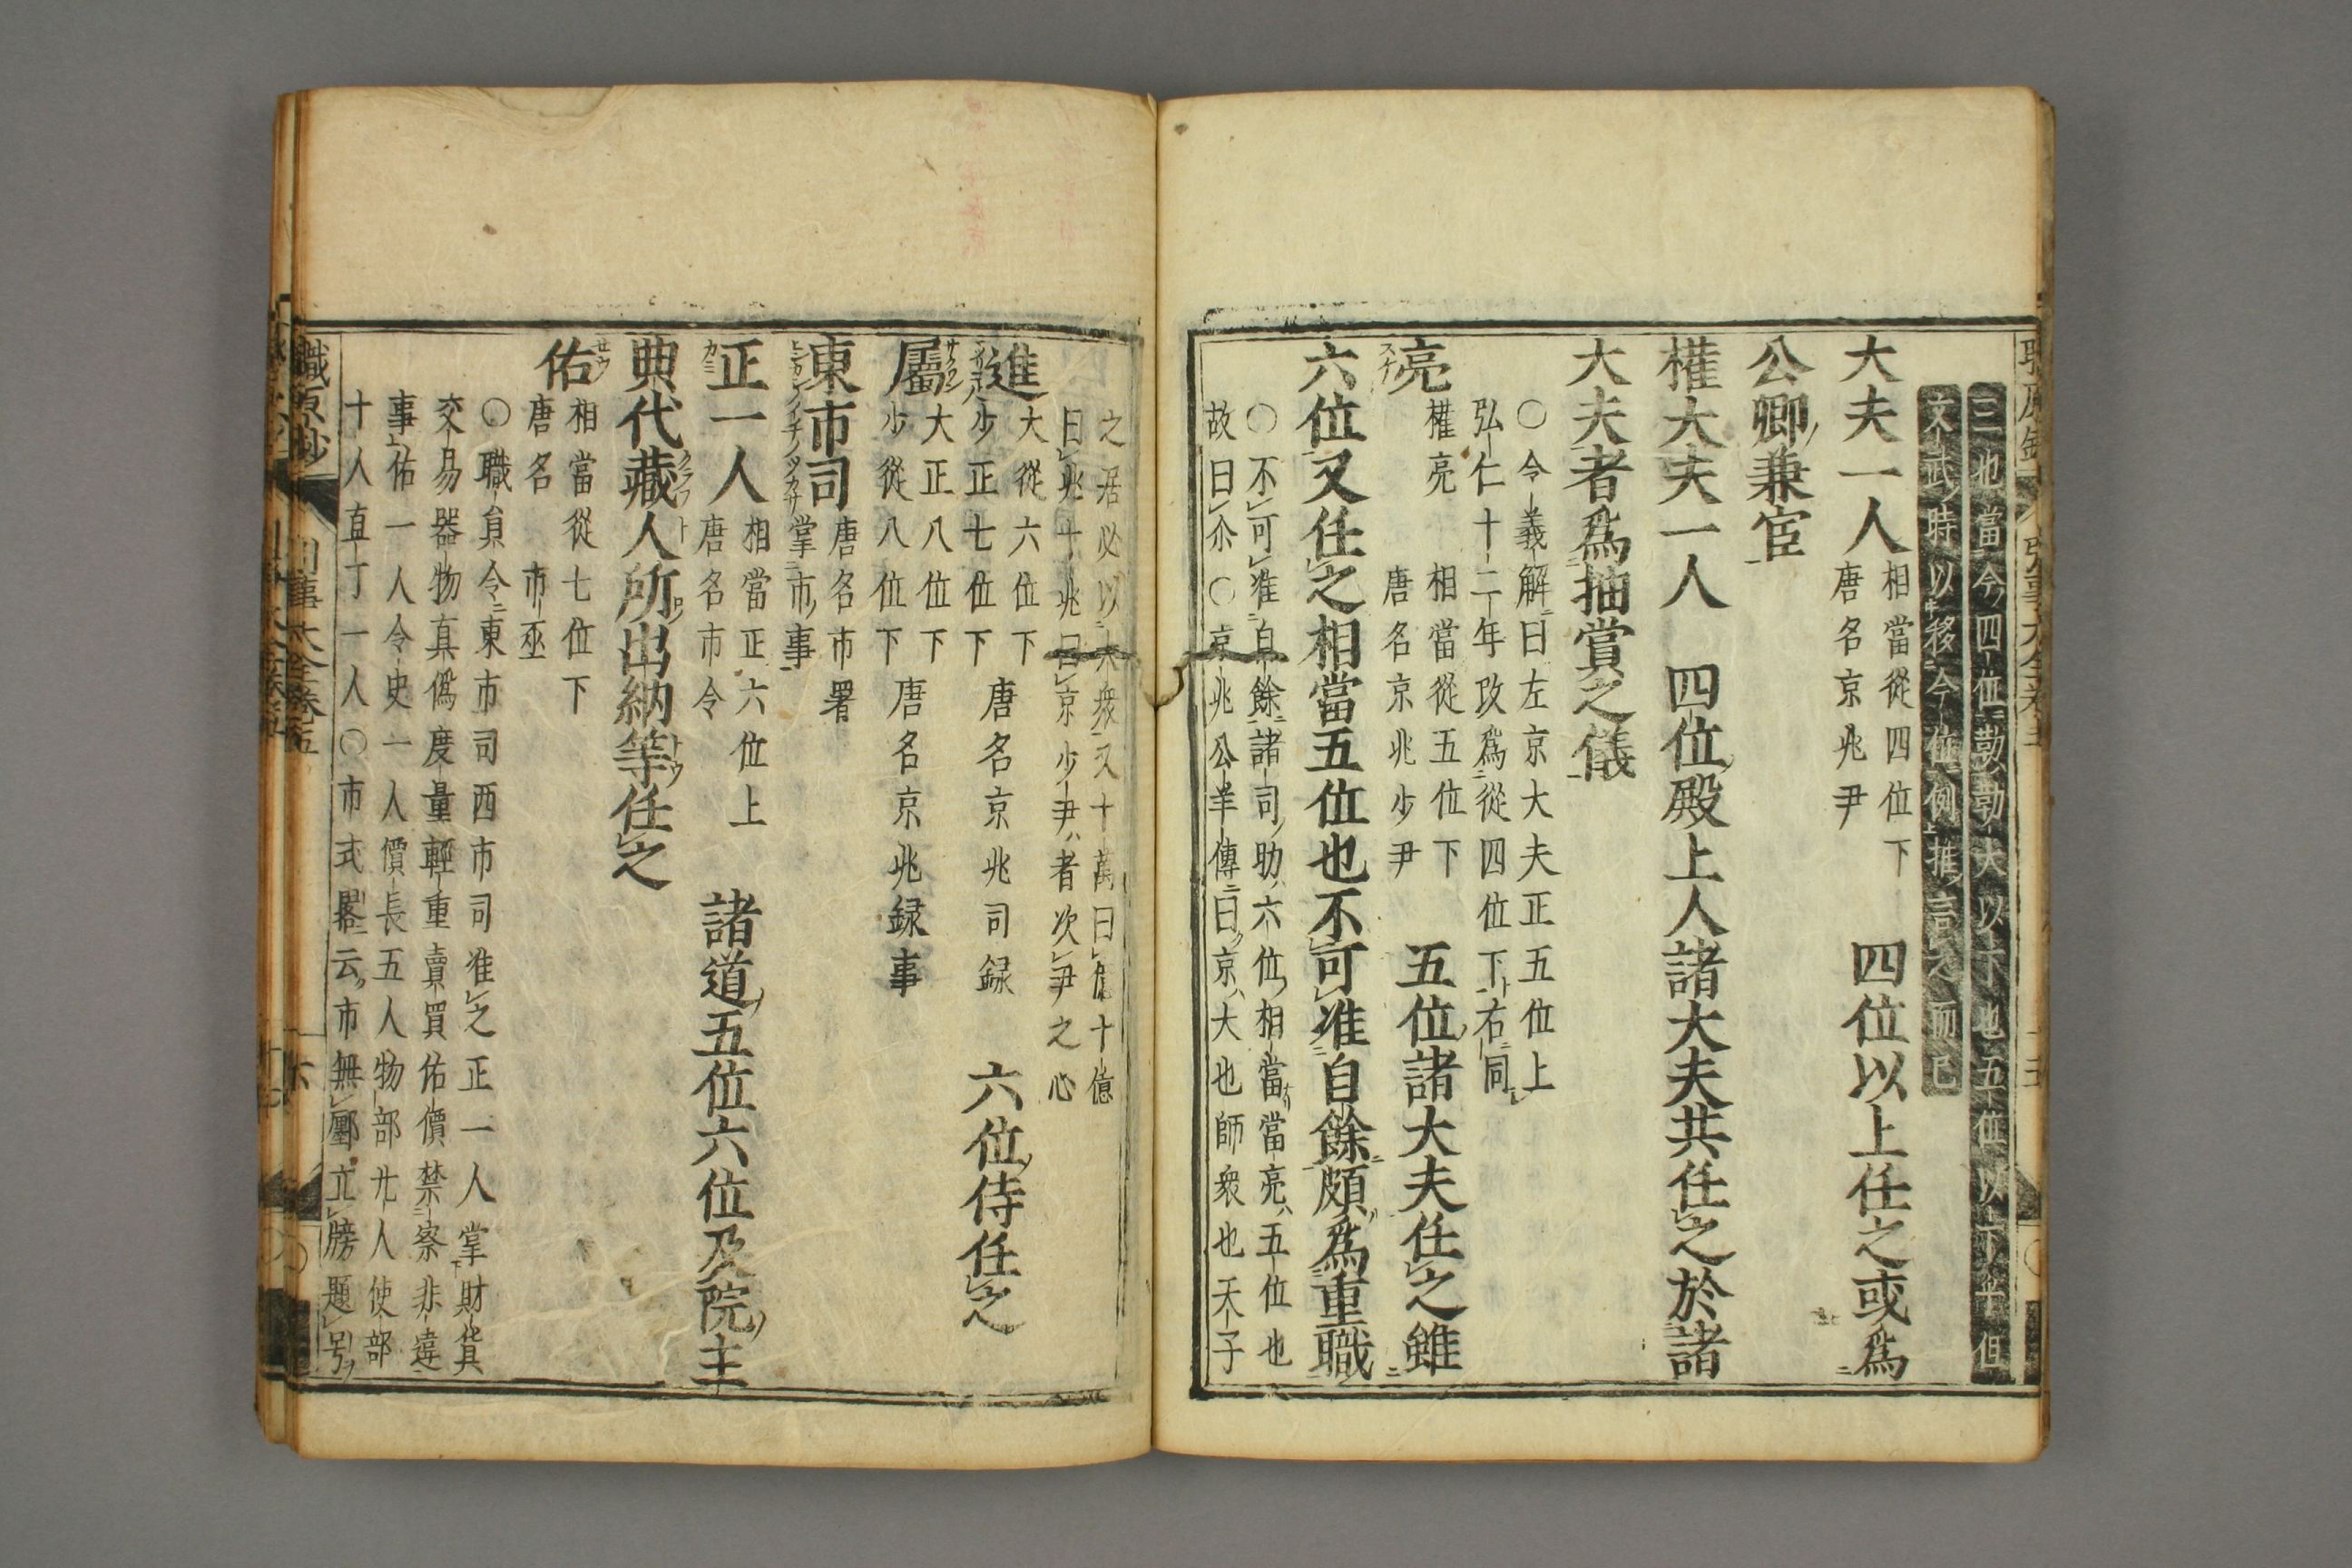 三也當今四位勲勲大以下也五位以下 但
文武時以移今位例推言之而已
大夫一人 相當從四位下 四位以上任之或爲
唐名京兆尹
公卿ノ兼官
權大夫一人 四位殿上人諸大夫共任之於諸
大夫者爲抽賞之儀
○令義解曰左京大夫正五位上
弘仁十二年改爲從四位下右同
亮 權亮 相當從五位下 五位諸大夫任之雖
唐名京兆少尹
六位又任之相當五位也不可准自餘頗爲重職
○不可准自餘諸司助六位相當當亮五位也
故曰尒○京兆公羊傳曰京大也師衆也天子
之居必以大衆又十萬曰億十億
曰兆十兆曰京少尹者次尹之心
進 大從六位下 唐名京兆司録 六位侍任之
少正七位下
屬 大正八位下 唐名京兆録事
少從八位下
東市司 唐名市署
掌市事
正一人 相當正六位上 諸道五位六位及院主
唐名市令
典代藏人所出納等任之
佑 相當從七位下
唐名 市丞
○職員令東市司西市司准之正一人掌財貨
交易器物真僞度量輕重賣買佑價禁察非違
事佑一人令史一人價長五人物部廿人使部
十人直丁一人○市式畧云市無鄽立牓題号
職原抄 引事大全卷五 十六